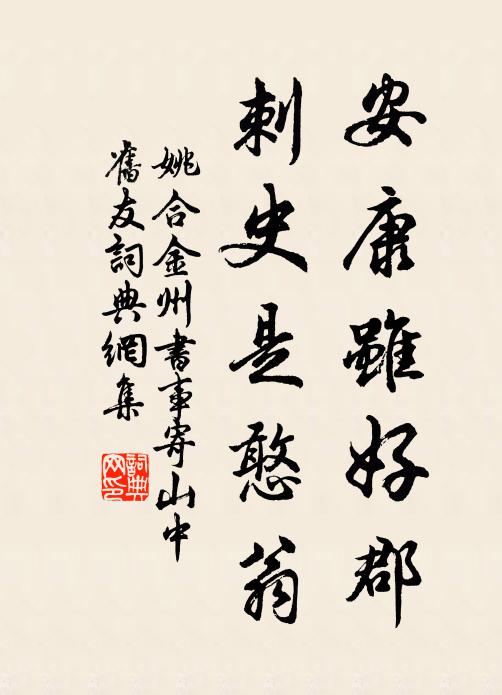 安康雖好郡
刺史是憨翁
姚合金州書事寄山中
舊友詞典網集
詞典
网印